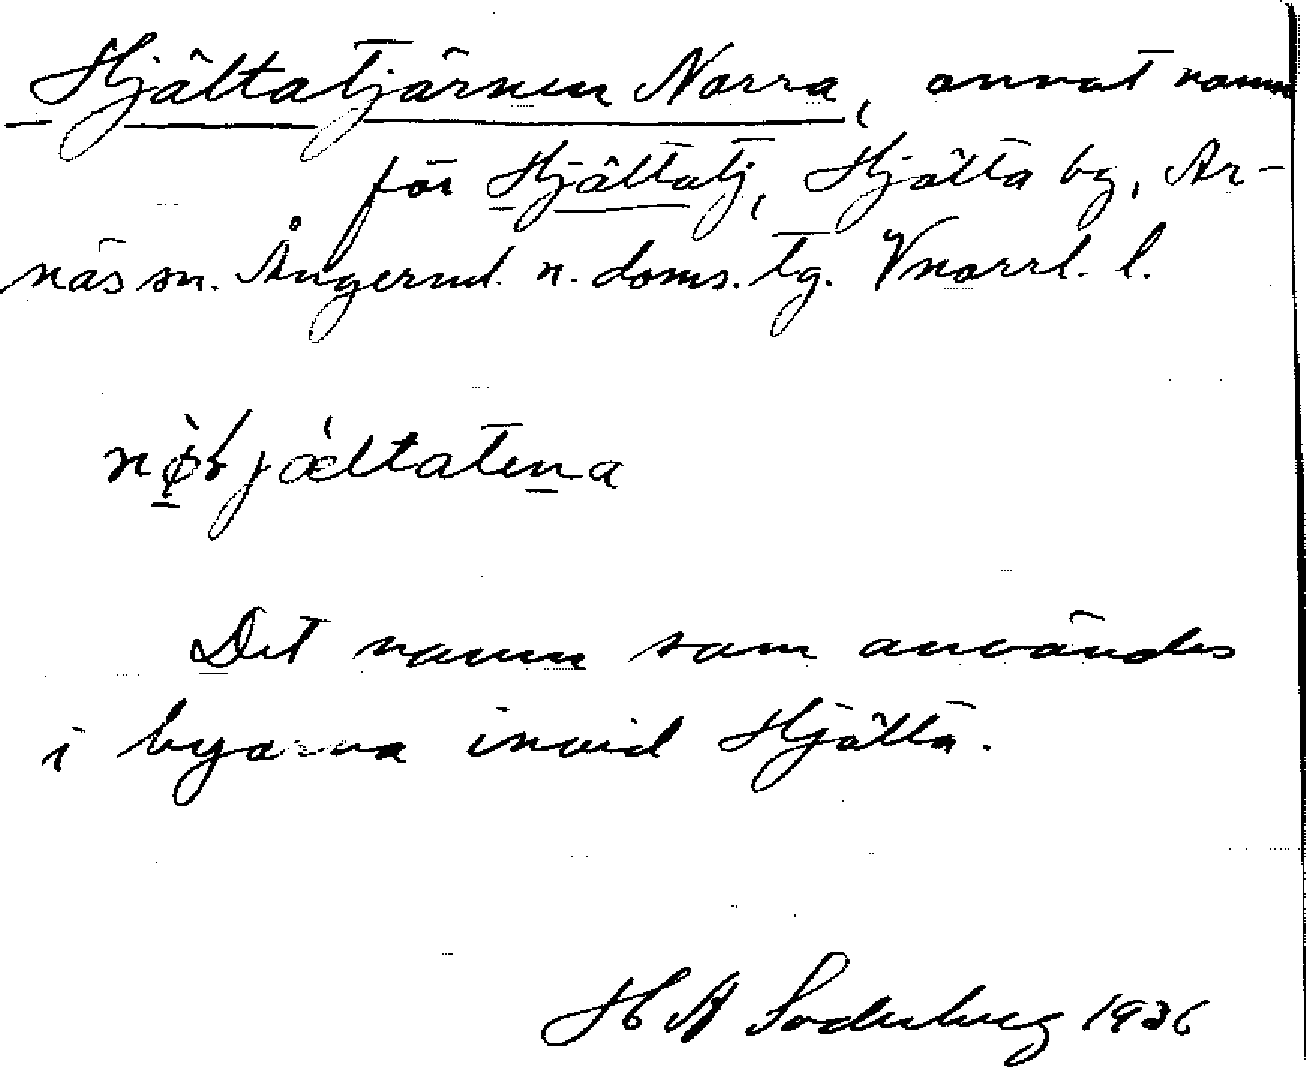 Hjältatjärnen Norra, annat namn
för Hjältatj, Hjälta by, Ar-
näs sn. Ångerml. n. doms. tg. Vnorrl. l.
Det namn som användes
i byarna invid Hjälta.
H A Söderberg 1936